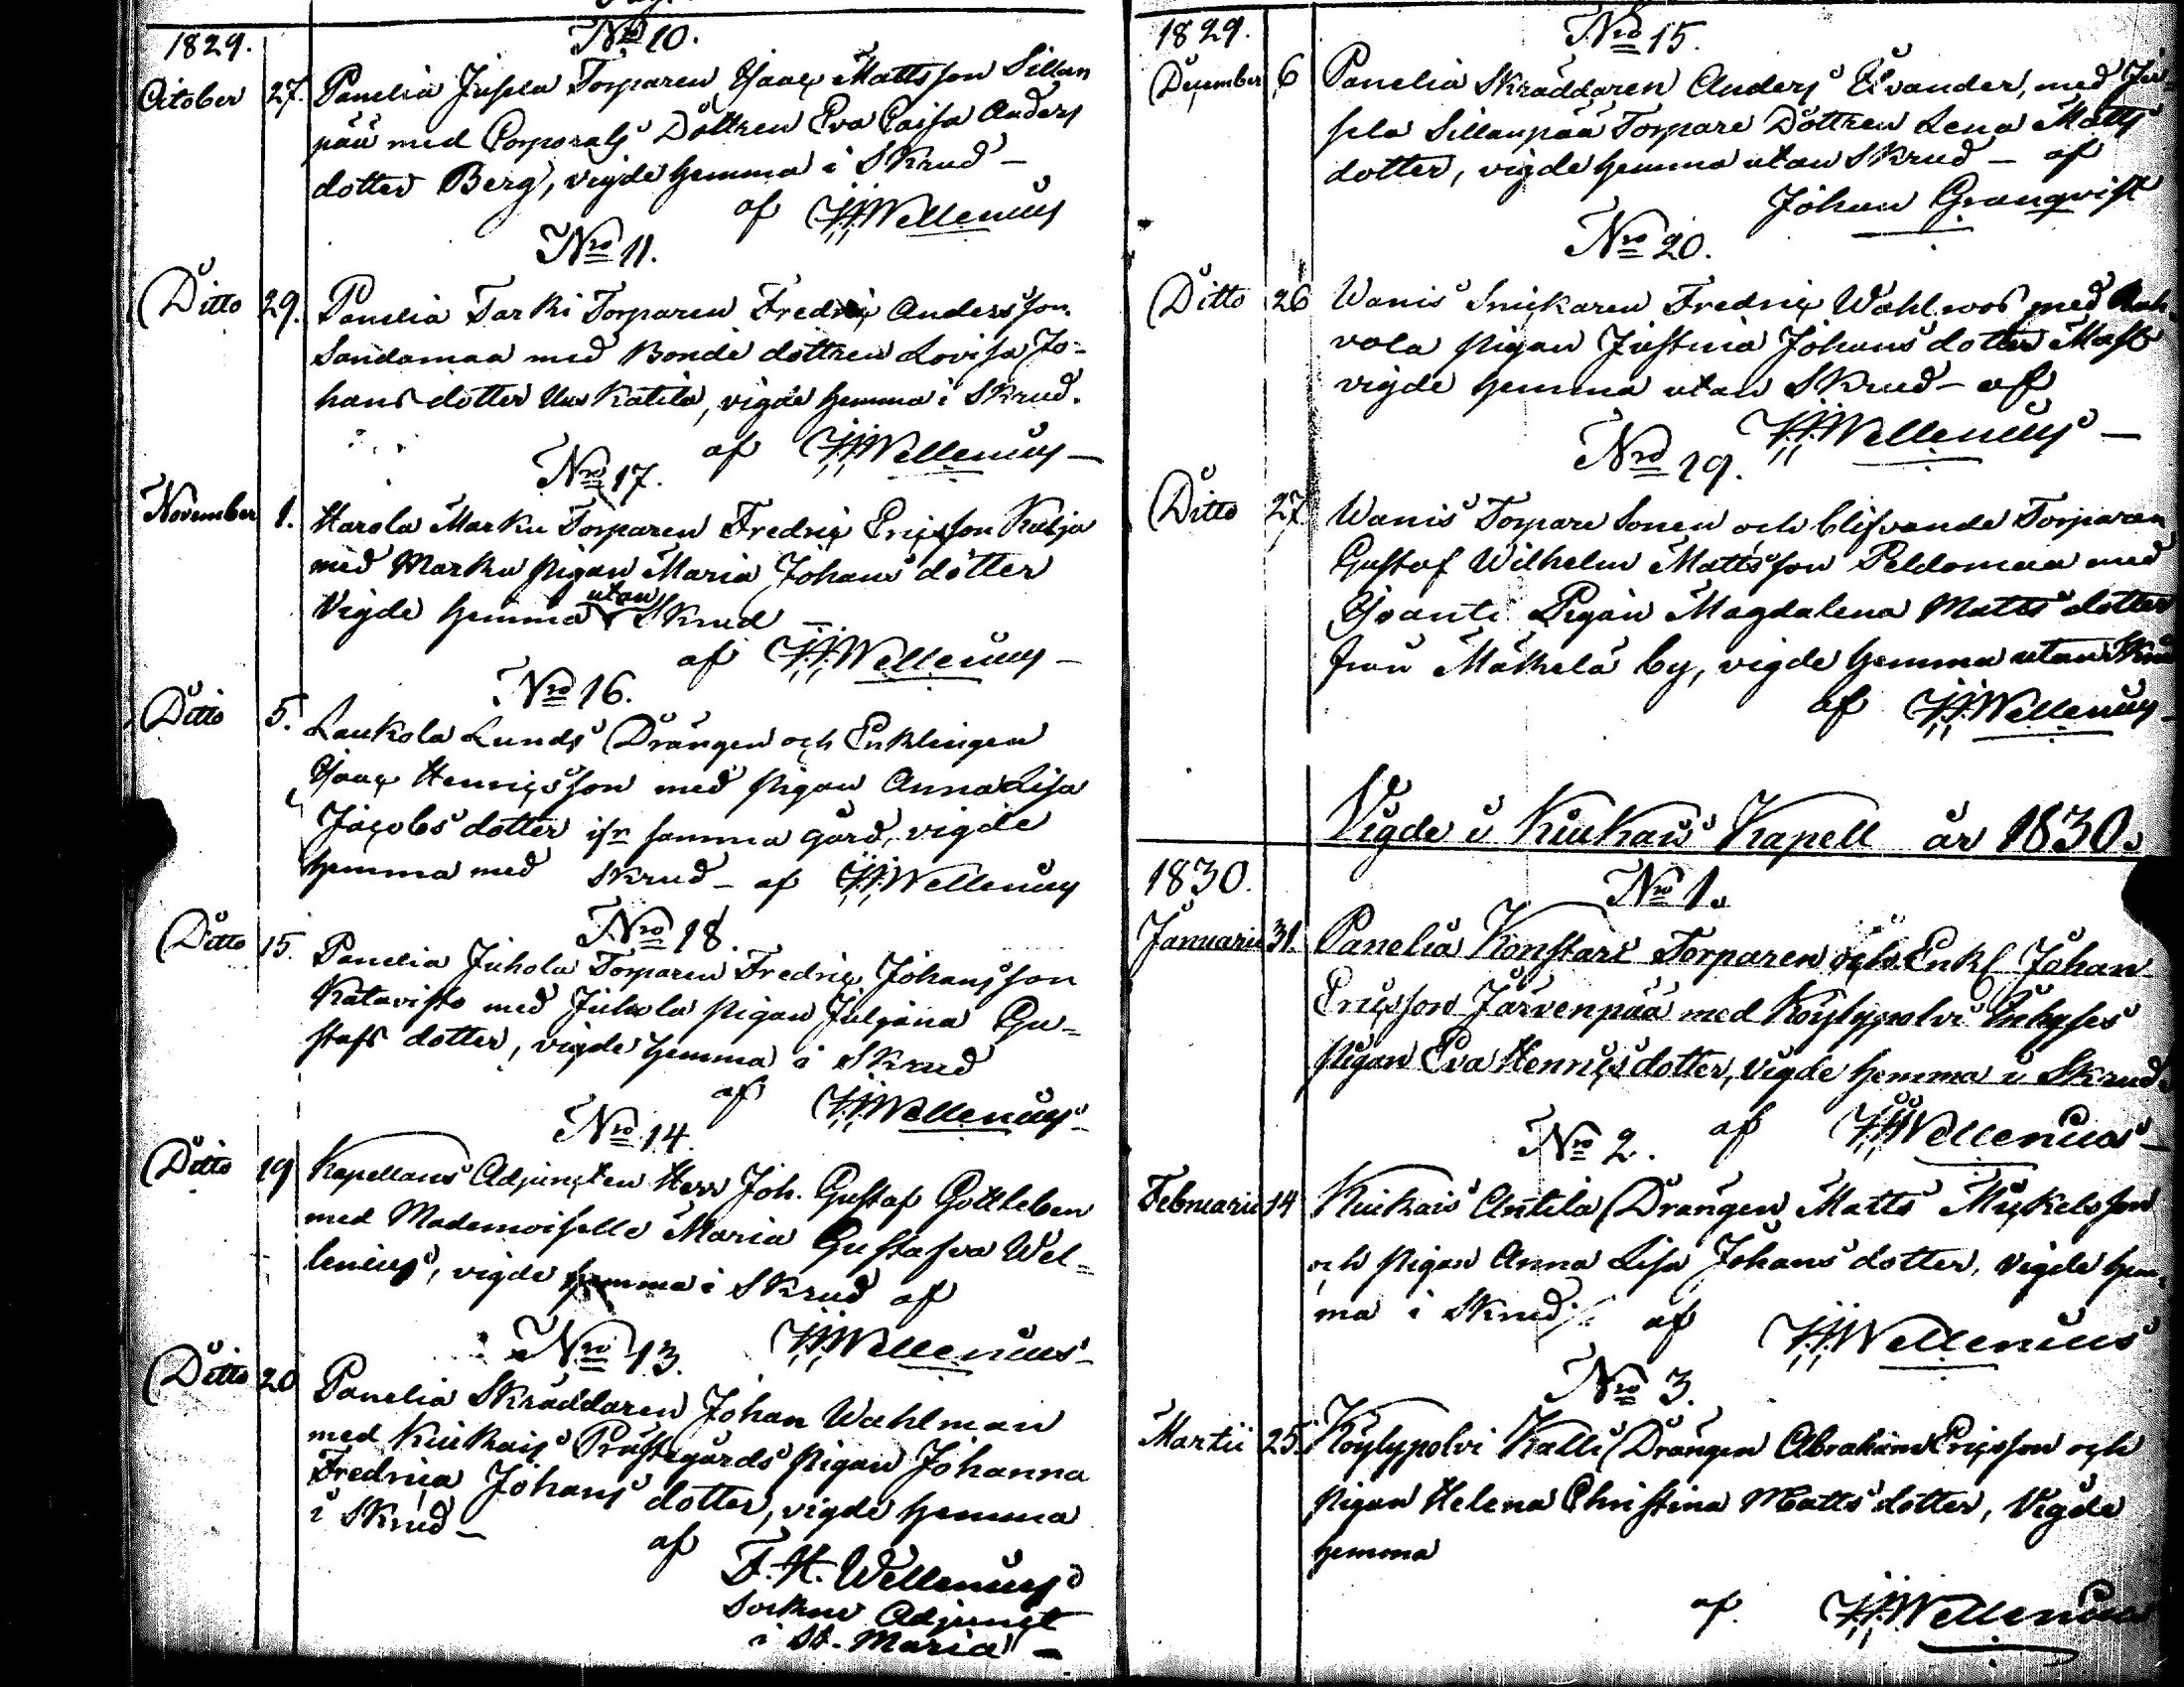 1829.
No 10.
October 27. Panelia Jusela Torparen Isaac Mattsson Sillan
pää med Corporals Dottren Eva Caisa Anders
dotter Berg, vigde hemma i Skrud —
af H.H. Wellenius
No 11.
Ditto 29. Panelia Tarki Torparen Fredric Andersson
Sandamaa med Bonde dottren Lovisa Jo=
hans dotter Katila, vigde hemma i Skrud.
af H.H. Wellenius —
No 17.
November 1. Harola Marku Torparen Fredric Ericsson Katja
med Marku pigan Maria Johans dotter
Vigde hemma utan Skrud —
af H.H. Wellenius —
No 16.
Ditto 5. Laukola Lunds Drängen och Enklingen
Isaac Henricsson med pigan Anna Lisa
Jacobs dotter ifr samma gård, vigde
hemma med Skrud — af H.H. Wellenius
No 18.
Ditto 15. Panelia Juhola Torparen Fredric Johansson
Katavisto med Juhola pigan Juljana Gu=
stafs dotter, vigde hemma i Skrud
af H.H. Wellenius —
No 14.
Ditto 19 Kapellans Adjuncten Herr Joh. Gustaf Gottleben
med Mademoiselle Maria Gustafva Wel=
lenius, vigde hemma i Skrud af
H.H. Wellenius —
No 13.
Ditto 20 Panelia Skräddaren Johan Wahlman
med Kiukais Prästegårds pigan Johanna
Fredrica Johans dotter, vigde hemma
i Skrud —
af F. H. Wellenius
Sockne Adjunct
i St. Maria —
1829.
No 15.
December 6 Panelia Skräddaren Anders Elvander, med Ju=
sela Sillanpää Torpare Dottren Lena Matts
dotter, vigde hemma utan Skrud — af
Johan Granqvist
No 20.
Ditto 26 Wanis Snickaren Fredric Wahlroos med
vola pigan Justina Johans dotter Mast
vigde hemma utan Skrud — af
H.H. Wellenius —
No 19.
Ditto 27 Wanis Torpare Sonen och blifvande Torparen
Gustaf Wilhelm Mattsson Peldomaa med
Isanti Pigan Magdalena Matts dotter
från Mäkelä by, vigde hemma utan Skrud
af H.H. Wellenius —
Vigde i Kiukais Kapell år 1830.
1830.
No 1.
Januarii 31. Panelia Konstari Torparen och Enkl Johan
Ericsson Järvenpää med Köylypolvi
pigan Eva Henrics dotter, vigde hemma i Skrud.
af H.H. Wellenius —
No 2.
Februarii 14 Kiukais Antila Drängen Matts Mickelsson
och pigan Anna Lisa Johans dotter, vigde hem=
ma i Skrud af H.H. Wellenius
No 3.
Martii 25. Köylypolvi Kalli Drängen Abraham Ericsson och
pigan Helena Christina Matts dotter, Vigde
hemma
af H.H. Wellenius